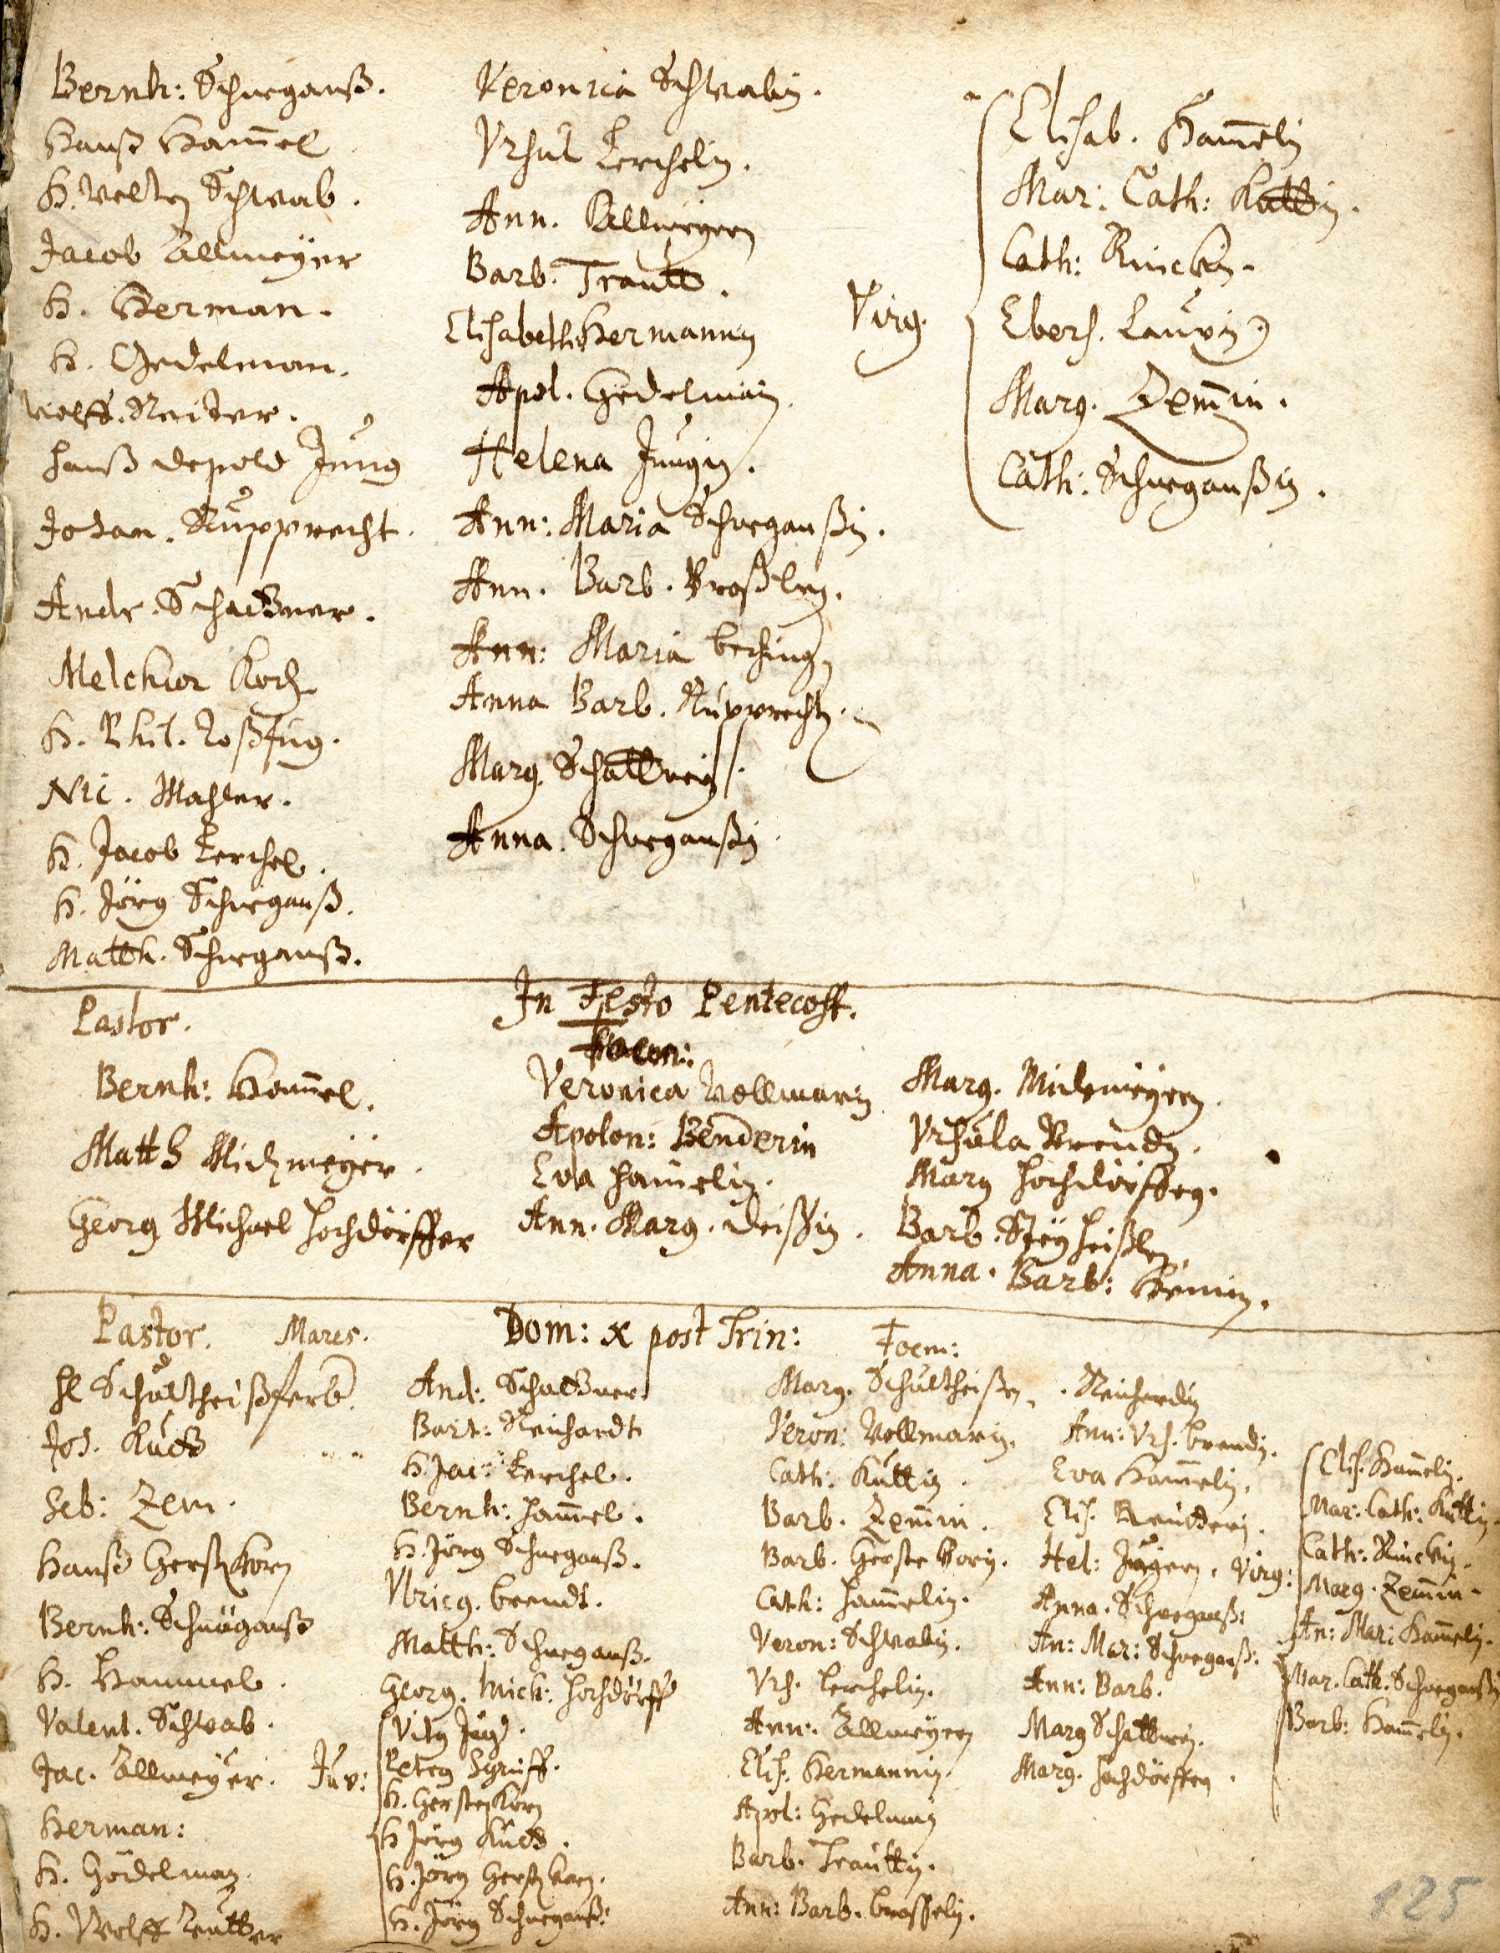 Bernh: Schneganß.
Hanß Ham̅el
H. Velten Schwab.
Jacob Allmeyer
H. Herman.
H. Gedelman.
Wolff. Reiter.
Hanß Depold Jung
Johan. Rupprecht.
Andr. Schadner.
Melchior Koch
H. Phil. Roßfug.
Nic. Mahler.
H. Jacob Lerchel.
H. Jörg Schneganß.
Matth. Schneganß.
Veronica Schwabin.
Ursul Lerchelin.
Ann. Allmeyern
Barb. Trautt.
Elisabeth Hermannin
Apol. Gedelmän.
Helena Jungin.
Ann: Maria Schneganßin.
Ann. Barb. Broßlen.
Ann: Maria
Anna Barb. Rupprechtn.
Marg. Schattnerin.
Anna. Schneganßin
Virg.
Elisab. Ham̅elin
Mar: Cath: Kuttin.
Cath: Rinckin.
Ebers. Laurin
Marg. Zem̅in.
Cath: Schneganßin.
Pastor.
In Festo Pentecost.
Bernh: Ham̅el.
Matth Midmeyer.
Georg Michael Hochdörffer
Foem:
Veronica Vollmarin
Apolon: Benderin
Eva Hamelin.
Ann. Marg. Deißin.
Marg. Midmeyern.
Ursula Brendin.
Marg Hochdörffen.
Barb.
Anna. Barb:
Pastor. Mares.
Dom: x post Trin:
Foem:
H Schultheiß ferb.
Joh. Kuds
Seb: Zem.
Hanß Gerstkorn
Bernh: Schneganß
H. Hammel.
Valent. Schwab.
Jac. Allmeyer.
Herman:
H. Gödelman.
H. Wolff Reutter
And: Schadner.
Bart: Reichardt
H. Jac: Lerchel.
Bernh: Ham̅el.
H. Jörg Schneganß.
Ulrich. Brendt.
Matth: Schneganß.
Georg. Mich: Hochdörff
Juv:
Vitg Jung.
Peter
H. Gerstenkorn
H Jörg Kuds.
H. Jörg Gerstkorn.
H. Jörg Schneganß:
Marg. Schultheißen.
Veron: Vollmarin.
Cath: Kuttin.
Barb. Zem̅in.
Barb. Gerstekorn.
Cath: Ham̅elin.
Veron: Schwabin.
Urs. Lerchelin.
Ann: Allmeyern
Elis. Hermannin.
Apol: Gedelmann
Barb. Trauttin.
Ann: Barb. Brosselin.
. Reichardin
Ann: Urs. Brendin.
Eva Ham̅elin.
Elis. Reutterin.
Hel: Jungin.
Anna. Schneganß:
An: Mar: Schneganß:
Ann: Barb.
Marg Schattnerin.
Marg. Hochdörffen.
Virg:
Elis. Ham̅elin.
Mar: Cath: Kuttin.
Cath: Rinckin.
Marg. Zem̅in.
An: Mar: Ham̅elin.
Mar. Cath. Schneganßin
Barb: Ham̅elin.
125